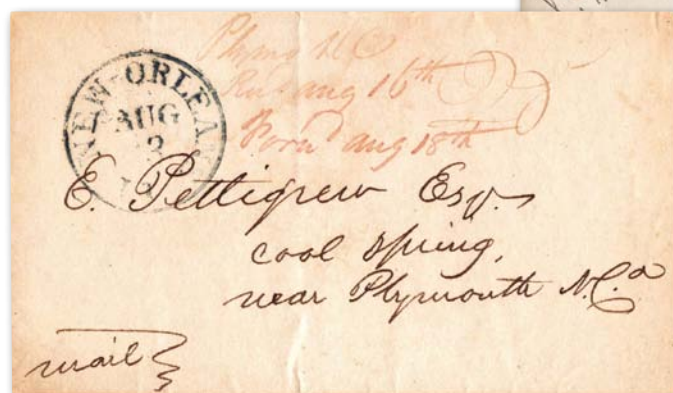 Plymo N C
Rec^d aug 16th
Forw^d aug 18th
NEW-ORLEA
AUG
3
E. Pettigrew Esqr.
cool spring,
near Plymouth N.C.^a
mail